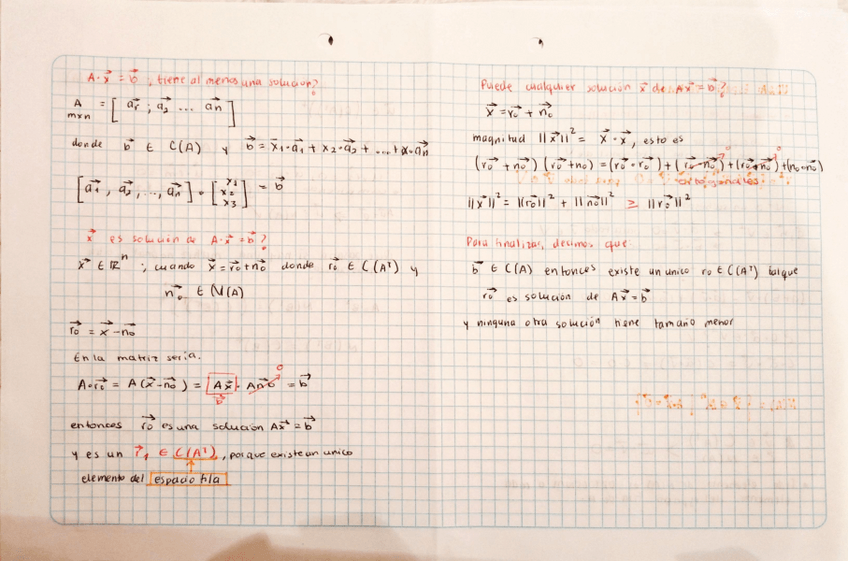 A·x⃗ = b⃗ ; tiene al menos una solucion?
A m×n = [ a⃗₁ ; a⃗₂ ... a⃗n ]
donde b⃗ ∈ C(A) y b⃗ = x₁·a⃗₁ + x₂·a⃗₂ + ... + x·a⃗n
[ a⃗₁ , a⃗₂ , ..., a⃗n ] · [ x₁ x₂ x₃ ] = b⃗
x⃗ es solución de A·x⃗ = b⃗ ?
x⃗ ∈ ℝⁿ ; cuando x⃗ = r⃗₀ + n⃗₀ donde r⃗₀ ∈ C(Aᵀ) y
n⃗₀ ∈ N(A)
r⃗₀ = x⃗ - n⃗₀
En la matriz seria.
A·r⃗₀ = A(x⃗ - n⃗₀) = A x⃗ - A n⃗₀ = b⃗
0
b⃗
entonces r⃗₀ es una solución Ax⃗ = b⃗
y es un r⃗₁ ∈ C(Aᵀ), porque existe un unico
elemento del espacio fila
Puede cualquier solución x⃗ de Ax⃗ = b⃗ ?
x⃗ = r⃗₀ + n⃗₀
magnitud ||x⃗||² = x⃗ · x⃗, esto es
(r⃗₀ + n⃗₀) (r⃗₀ + n₀) = (r⃗₀ · r⃗₀) + (r⃗₀ · n⃗₀) + (r⃗₀ · n⃗₀) + (n₀ · n₀)
0 0
ortogonales
||x⃗||² = ||r⃗₀||² + ||n⃗₀||² ≥ ||r⃗₀||²
Para finalizar, decimos que:
b⃗ ∈ C(A) entonces existe un unico r₀ ∈ C(Aᵀ) tal que
r⃗₀ es solución de Ax⃗ = b⃗
y ninguna otra solución tiene tamaño menor